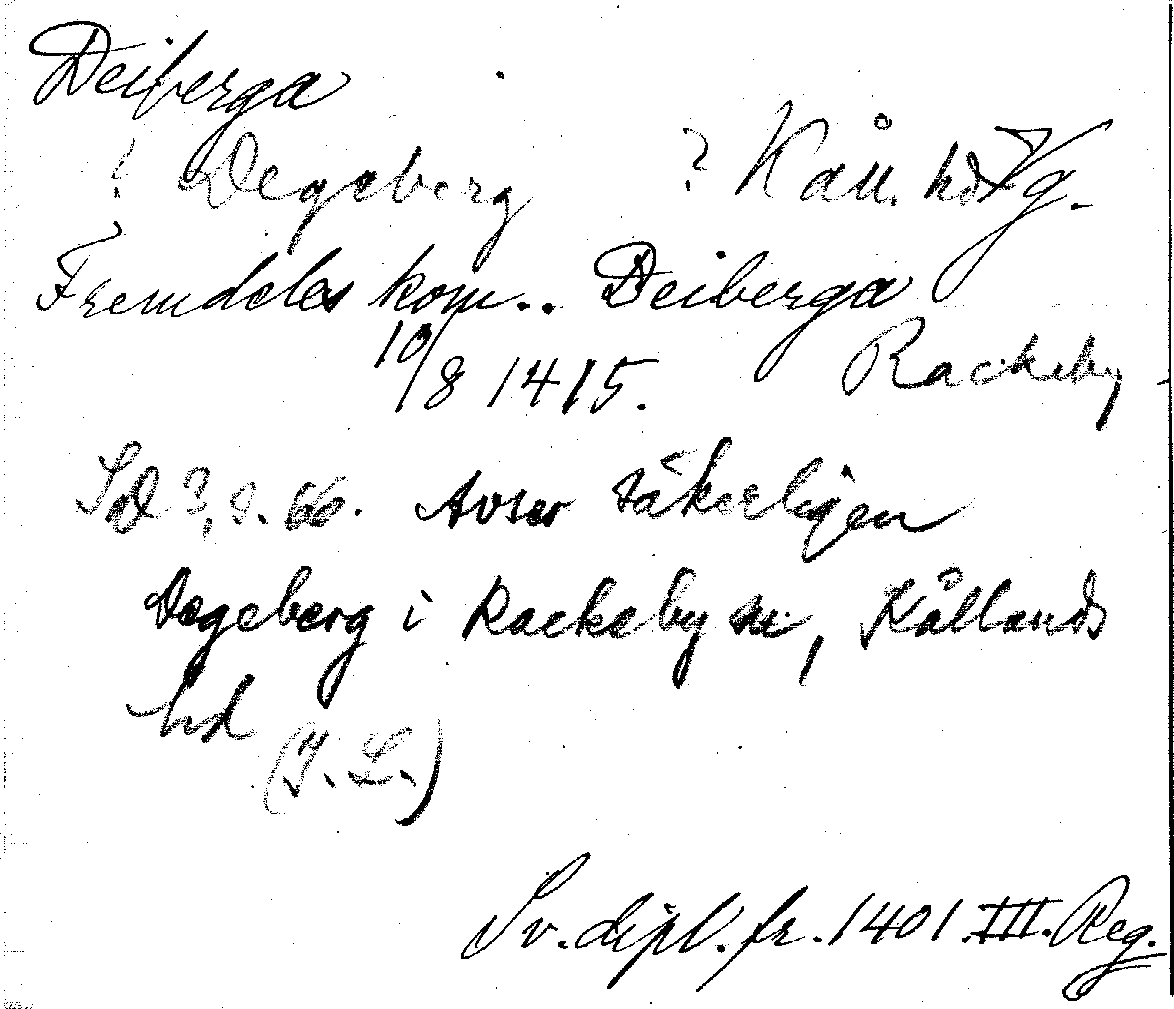 Deiberga
? Degeberg ? Kåll. hd Vg.
Fremdeles kom.. Deiberga
10/8 1415. Rackeby
SD ?, s. 66. Avser säkerligen
Degeberg i Rackeby sn, Kållands
hd (I. L.)
Sv. dipl. fr. 1401. III. Reg.